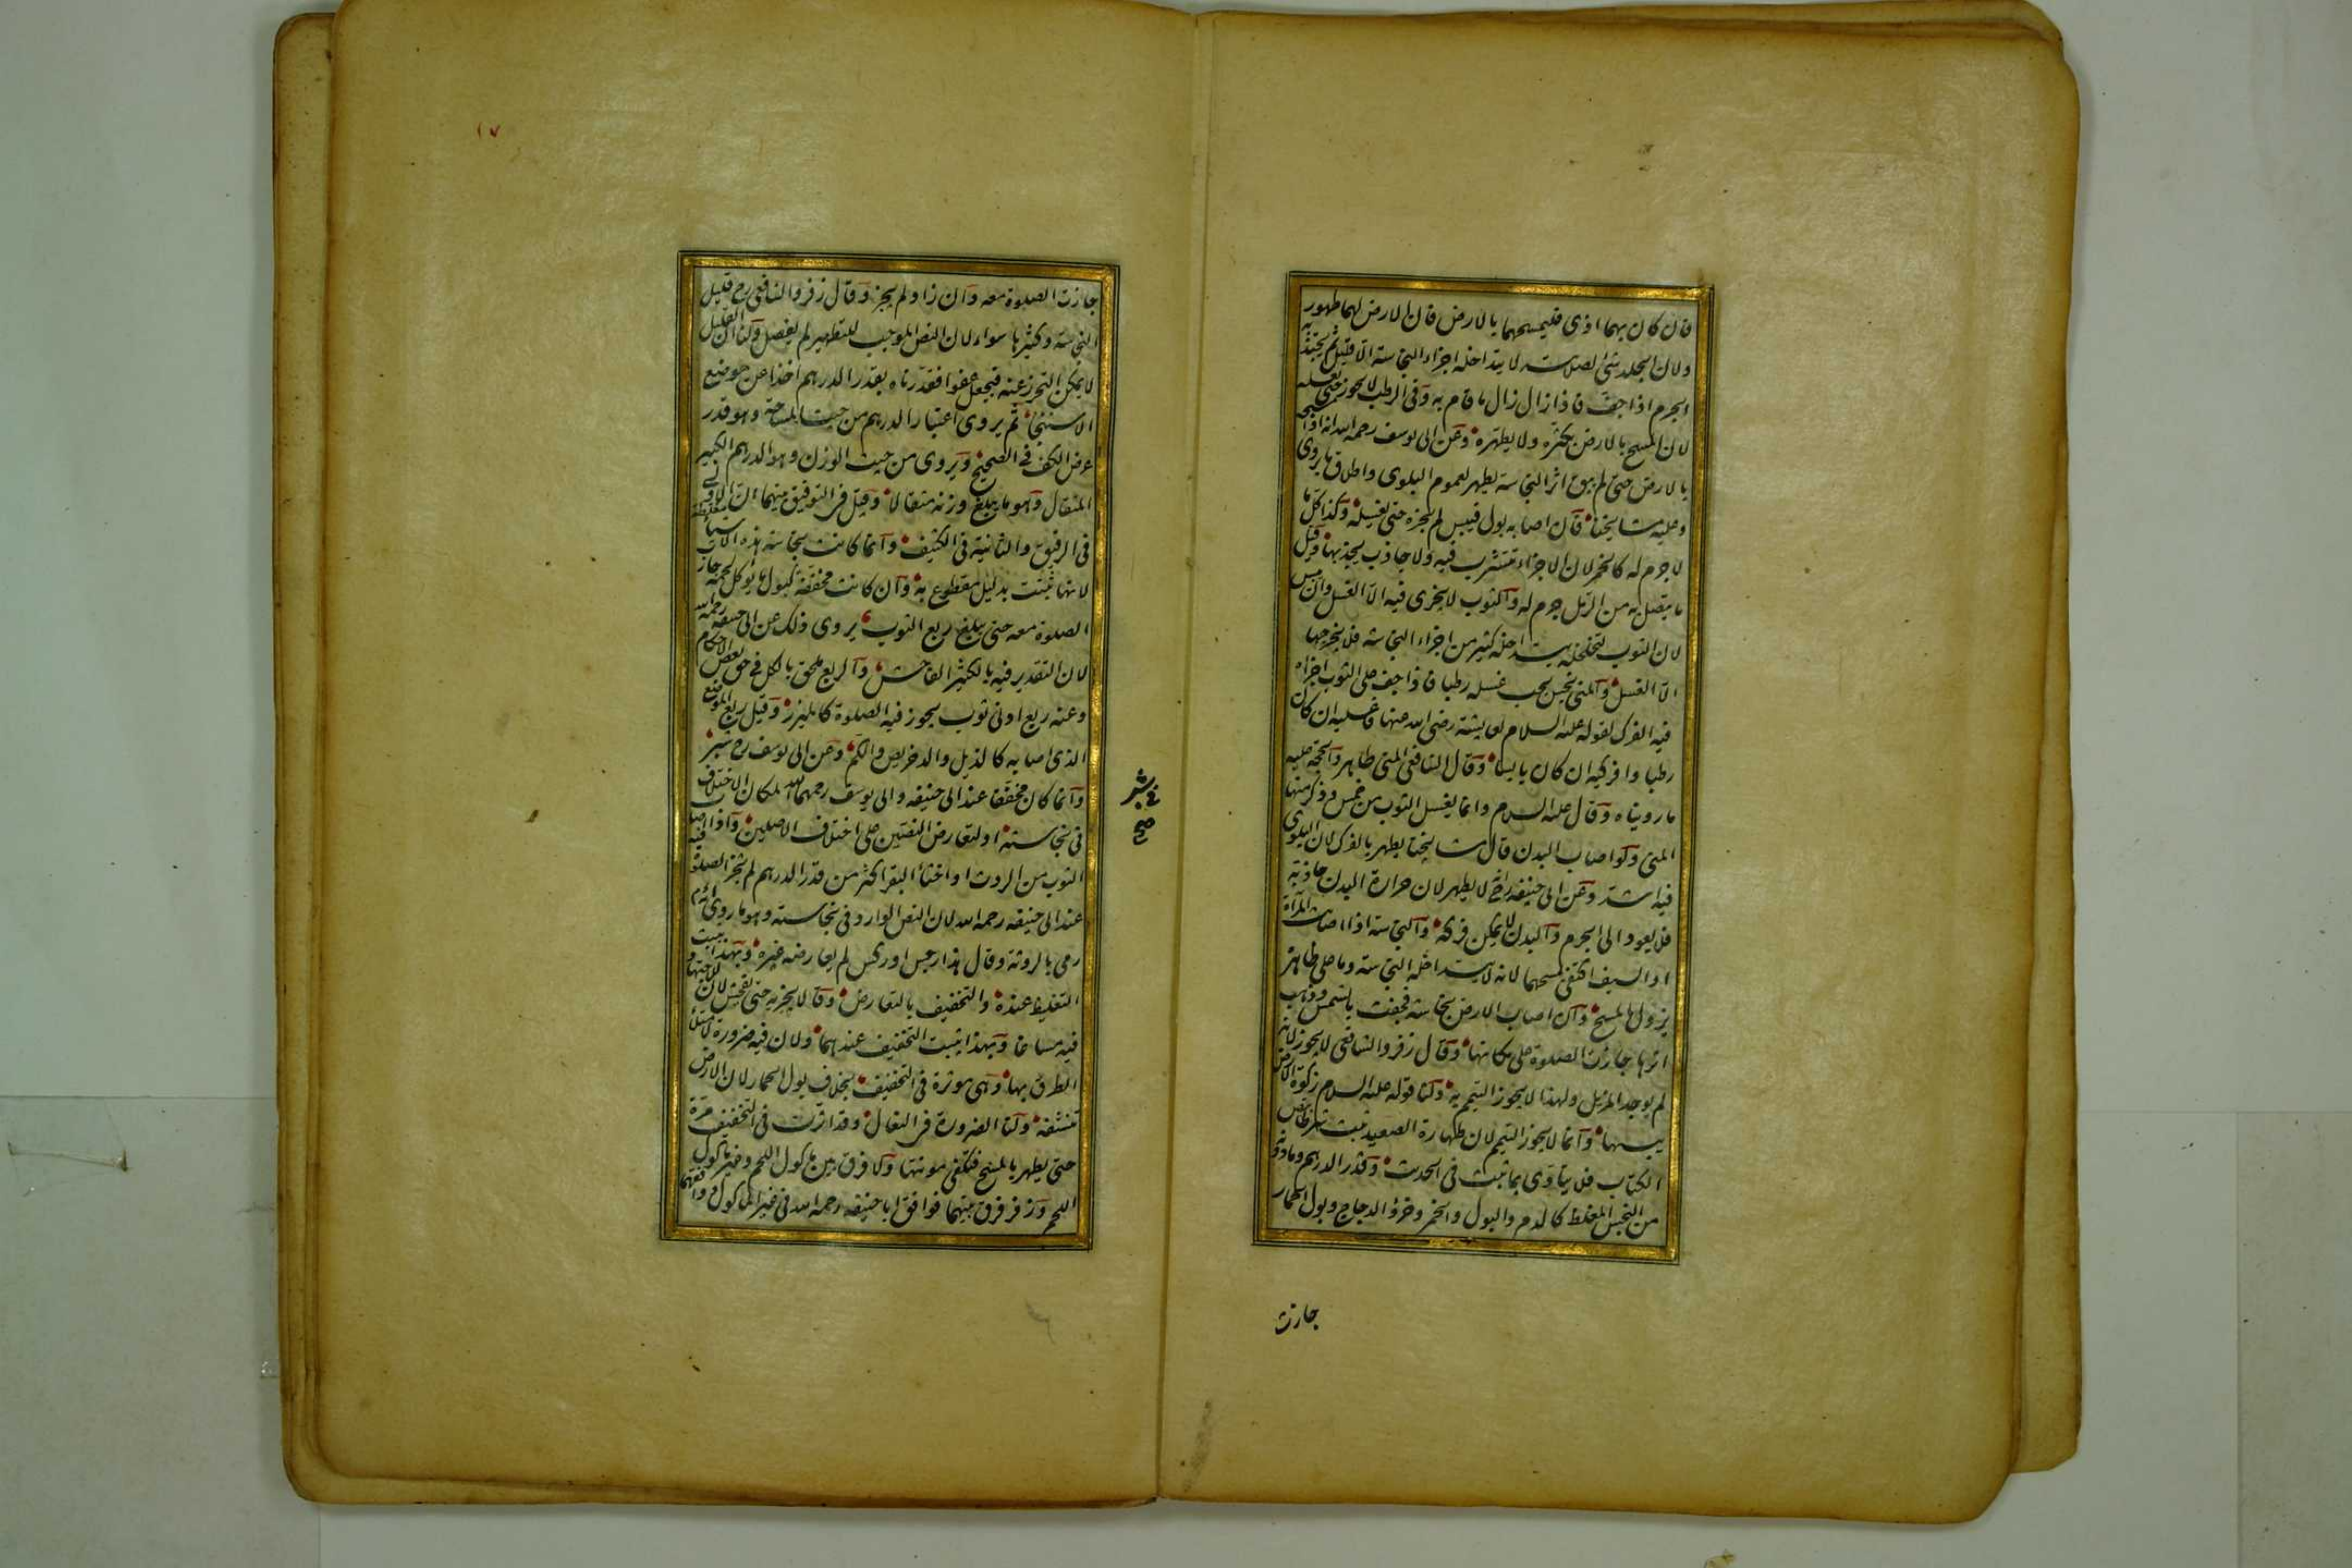 فان كان بهما اذى فليمسحهما بالارض فان الارض لهما طهور
ولان الجلد شئ لصلابته لا يتداخله اجزاء النجاسة الا قليل ثم يجتذبه
الجرم اذا جف فاذا زال زال ما قام به وفى الرطب لا يجوز حتى يغسله
لان المسح بالارض يكثره ولا يطهره وعن ابى يوسف رحمه الله انه اذا مسحه
بالارض حتى لم يبق اثر النجاسة يطهر لعموم البلوى واطلاق ما يروى
وعليه مشايخنا فان اصابه بول فيبس لم يجزه حتى يغسله وكذا كل ما
لا جرم له كالخمر لان الاجزاء تتشرب فيه ولا جاذب يجذبها وقيل
ما يتصل به من الرمل جرم له والثوب لا يجزى فيه الا الغسل وان يبس
لان الثوب لتخلخله يتداخله كثير من اجزاء النجاسة فلا يخرجها
الا الغسل والمنى نجس يجب غسله رطبا فاذا جف على الثوب اجزاه
فيه الفرك لقوله عليه السلام لعايشة رضى الله عنها فاغسليه ان كان
رطبا وافركيه ان كان يابسا وقال الشافعى المنى طاهر والحجة عليه
ما رويناه وقال عليه السلام وانما يغسل الثوب من خمس وذكر منها
المنى ولو اصاب البدن قال مشايخنا يطهر بالفرك لان البلوى
فيه اشد وعن ابى حنيفة رح لا يطهر لان حرارة البدن جاذبة
فلا يعود الى الجرم والبدن لا يمكن فركه والنجاسة اذا اصابت المرآة
او السيف اكتفى بمسحهما لانه لا يتداخله النجاسة وما على ظاهره
يزول بالمسح وان اصاب الارض نجاسة فجفت بالشمس وذهب
اثرها جازت الصلوة على مكانها وقال زفر والشافعى لا يجوز لانه
لم يوجد المزيل ولهذا لا يجوز التيمم به ولنا قوله عليه السلام زكوة الارض
يبسها وانما لا يجوز التيمم لان طهارة الصعيد ثبت شرطا بنص
الكتاب فلا يتأدى بما ثبت فى الحديث وقدر الدرهم وما دونه
من النجس المغلظ كالدم والبول والخمر وخرؤ الدجاج وبول الحمار
جازت
١٧
جازت الصلوة معه وان زاد لم يجز وقال زفر والشافعى رح قليل
النجاسة وكثيرها سواء لان النص الموجب للتطهير لم يفصل ولنا ان القليل
لا يمكن التحرز عنه فيجعل عفوا فقدرناه بقدر الدرهم اخذا عن موضع
الاستنجاء ثم يروى اعتبار الدرهم من حيث المساحة وهو قدر
عرض الكف فى الصحيح ويروى من حيث الوزن وهو الدرهم الكبير
المثقال وهو ما يبلغ وزنه مثقالا وقيل فى التوفيق بينهما ان الاولى
فى الرقيق والثانية فى الكثيف وانما كانت نجاسة هذه الاشياء مغلظة
لانها ثبتت بدليل مقطوع به وان كانت مخففة كبول ما يؤكل لحمه جاز
الصلوة معه حتى يبلغ ربع الثوب يروى ذلك عن ابى حنيفة رحمه الله
لان التقدير فيه بالكثير الفاحش والربع ملحق بالكل فى حق بعض الاحكام
وعنه ربع ادنى ثوب يجوز فيه الصلوة كالميزر وقيل ربع الموضع
الذى اصابه كالذيل والدخريص والكم وعن ابى يوسف رح شبر
وانما كان مخففا عند ابى حنيفة وابى يوسف رحمهما الله لمكان الاختلاف
فى نجاسته او لتعارض النصين على اختلاف الاصلين واذا اصاب
الثوب من الروث او اخثاء البقر اكثر من قدر الدرهم لم تجز الصلوة فيه
عند ابى حنيفة رحمه الله لان النص الوارد فى نجاسته وهو ما روى انه م
رمى بالروثة وقال هذا رجس او ركس لم يعارضه غيره وبهذا يثبت
التغليظ عنده والتخفيف بالتعارض وقالا يجزيه حتى يفحش لان للاجتهاد
فيه مساغا وبهذا يثبت التخفيف عندهما ولان فيه ضرورة لامتلاء
الطرق بها وهى موثرة فى التخفيف بخلاف بول الحمار لان الارض
تنشفه ولنا الضرورة فى النعال وقد اثرت فى التخفيف مرة
حتى يطهر بالمسح فتكفى مونتها ولا فرق بين ماكول اللحم وغير ماكول
اللحم وزفر فرق بينهما فوافق ابا حنيفة رحمه الله فى غير الماكول ووافقهما
صح